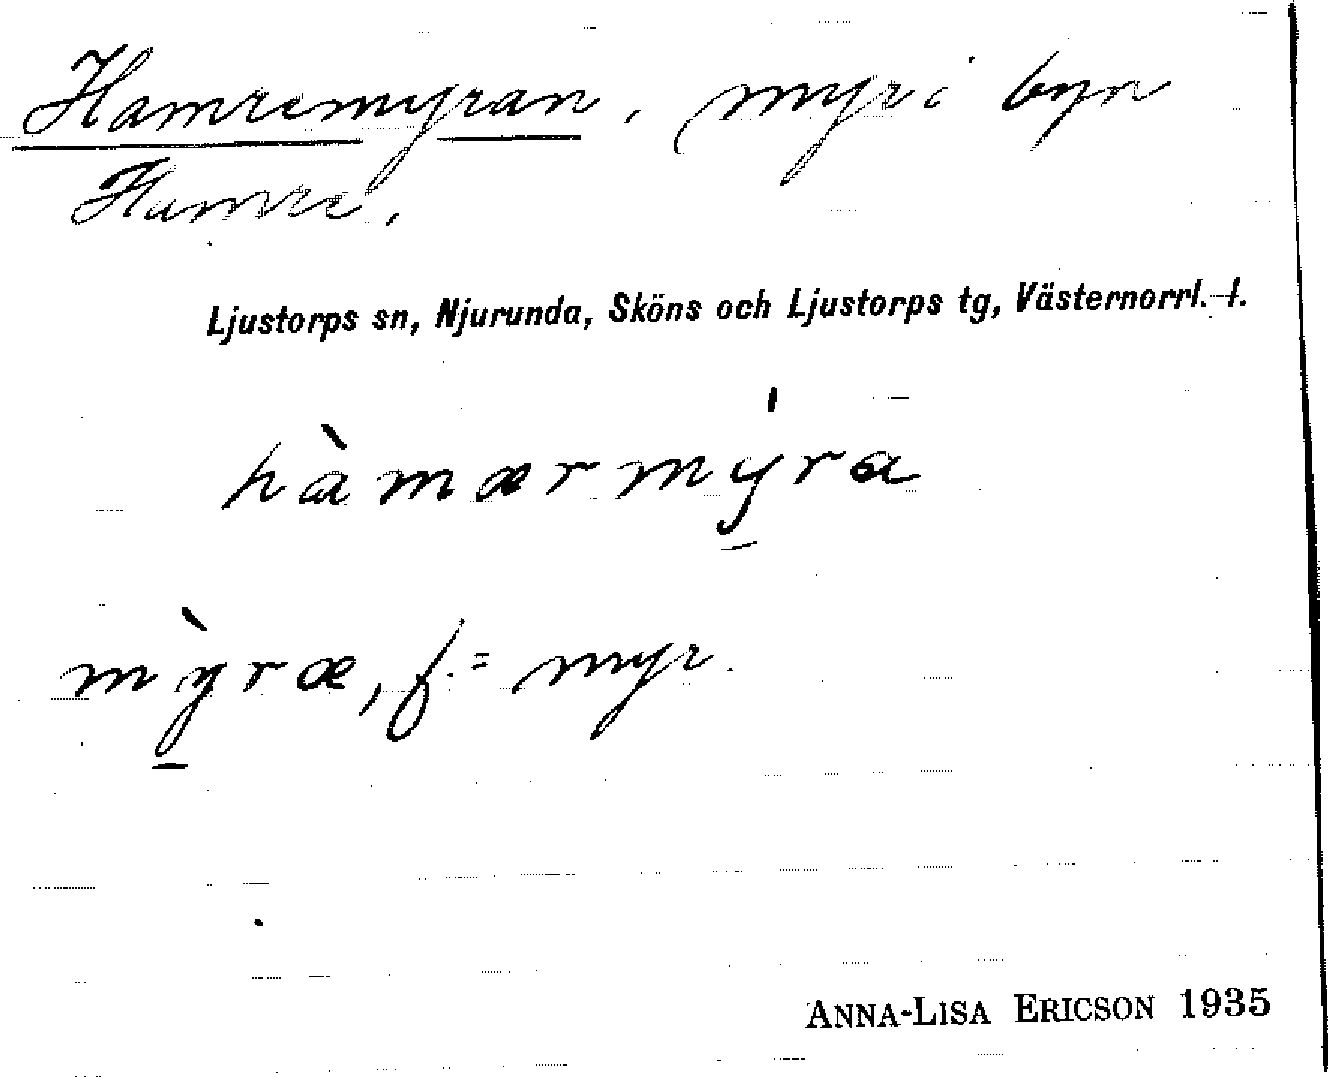 Hamremyran, myr i byn
Hamre.
Ljustorps sn, Njurunda, Sköns och Ljustorps tg, Västernorrl. l.
hàmærmý̱ra
mỳ̱ræ, f. = myr.
ANNA-LISA ERICSON 1935